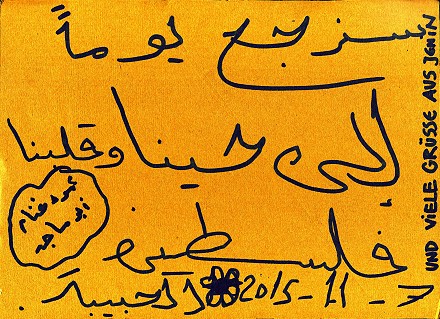 سنرجع يوماً
إلى حينا وقلبنا
فلسطين
الحبيبة. 2015-11-7
أبو ماجد
UND VIELE GRÜSSE AUS JENIN